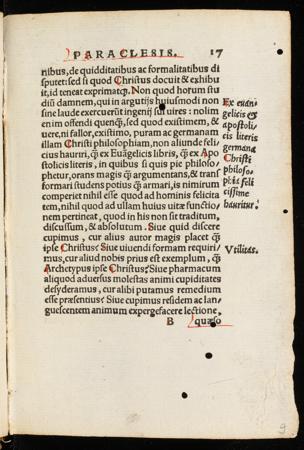 PARACLESIS. 17
nibus, de quidditatibus ac formalitatibus di
sputet: sed si quod Christus docuit & exhibu
it, id teneat exprimatq́;. Non quod horum stu
diũ damnem, qui in argutijs huiusmodi non
sine laude exercuerũt ingenij sui uires: nolim
enim offendi quenq̃, sed quod existimem, &
uere, ni fallor, existimo, puram ac germanam
illam Christi philosophiam, non aliunde feli-
cius hauriri, q̃ ex Euãgelicis libris, q̃ ex Apo
stolicis literis, in quibus si quis pie philoso-
phetur, orans magis q̃ argumentans, & trans
formari studens potius q̃ armari, is nimirum
comperiet nihil esse quod ad hominis felicita
tem, nihil quod ad ullam huius uitæ functio
nem pertineat, quod in his non sit traditum,
discussum, & absolutum. Siue quid discere
cupimus, cur alius autor magis placet q̃
ipse Christus? Siue uiuendi formam requiri-
mus, cur aliud nobis prius est exemplum, q̃
Archetypus ipse Christus? Siue pharmacum
aliquod aduersus molestas animi cupiditates
desyderamus, cur alibi putamus remedium
esse præsentius? Siue cupimus residem ac lan-
guescentem animum expergefacere lectione,
B quæso
Ex euan-
gelicis et
apostoli-
cis literis
germana
Christi
philoso-
phia feli
cissime
hauritur.
Vtilitas.
9